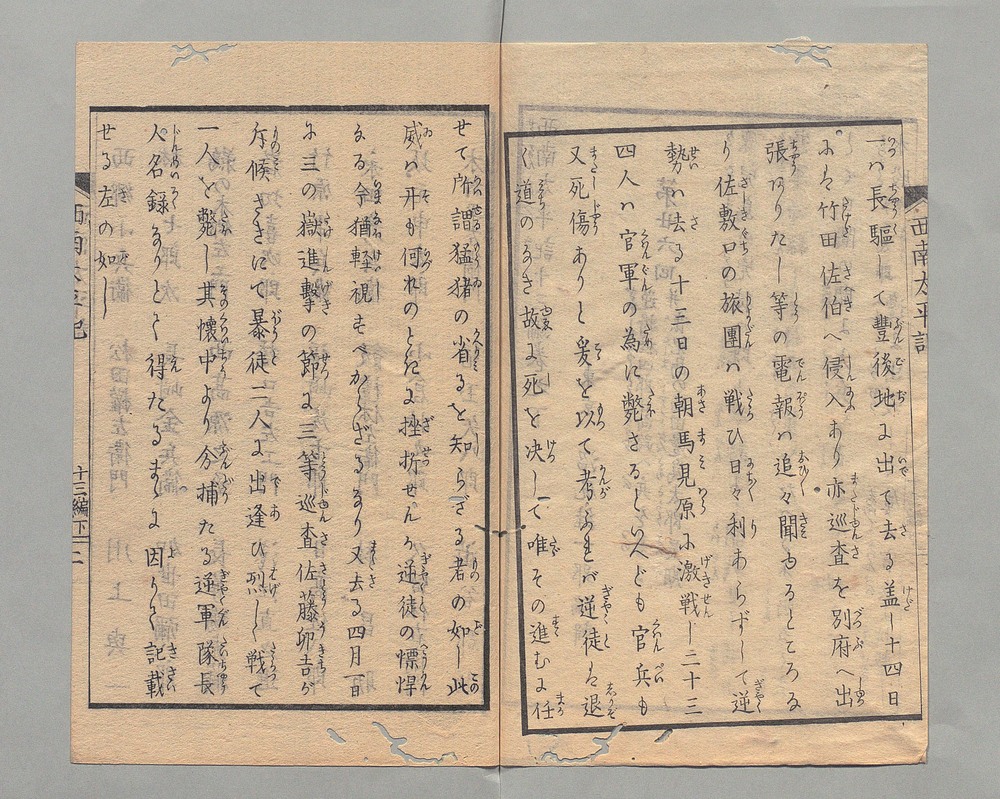 西南太平記
一ハ長驅して豐後地に出て去る蓋し十四日
にハ竹田佐伯へ侵入あり亦巡査を別府へ出
張ありたし等の電報ハ追々聞ゆるところな
り佐敷口の旅團ハ戦ひ日々利あらずして逆
勢ハ去る十三日の朝馬見原に激戦し二十三
四人ハ官軍の為に斃さるといへども官兵も
又死傷ありと爰を以て考ふれバ逆徒ハ退
く道のなき故に死を决して唯その進むに任
せて所謂猛猪の省るを知らざる者の如し此
威ハ丹も何れのときに挫折せんか逆徒の慓悍
なる今猶軽視すべからざるなり又去る四月一日
三の嶽進撃の節に三等巡査佐藤卯吉が
斥候さきにて暴徒二人に出逢ひ烈しく戦て
一人を斃し其懐中より分捕たる逆軍隊長
人名録なりとて得たるまゝに因りて記載
せる左の如し
西南太平記
十三編下 二